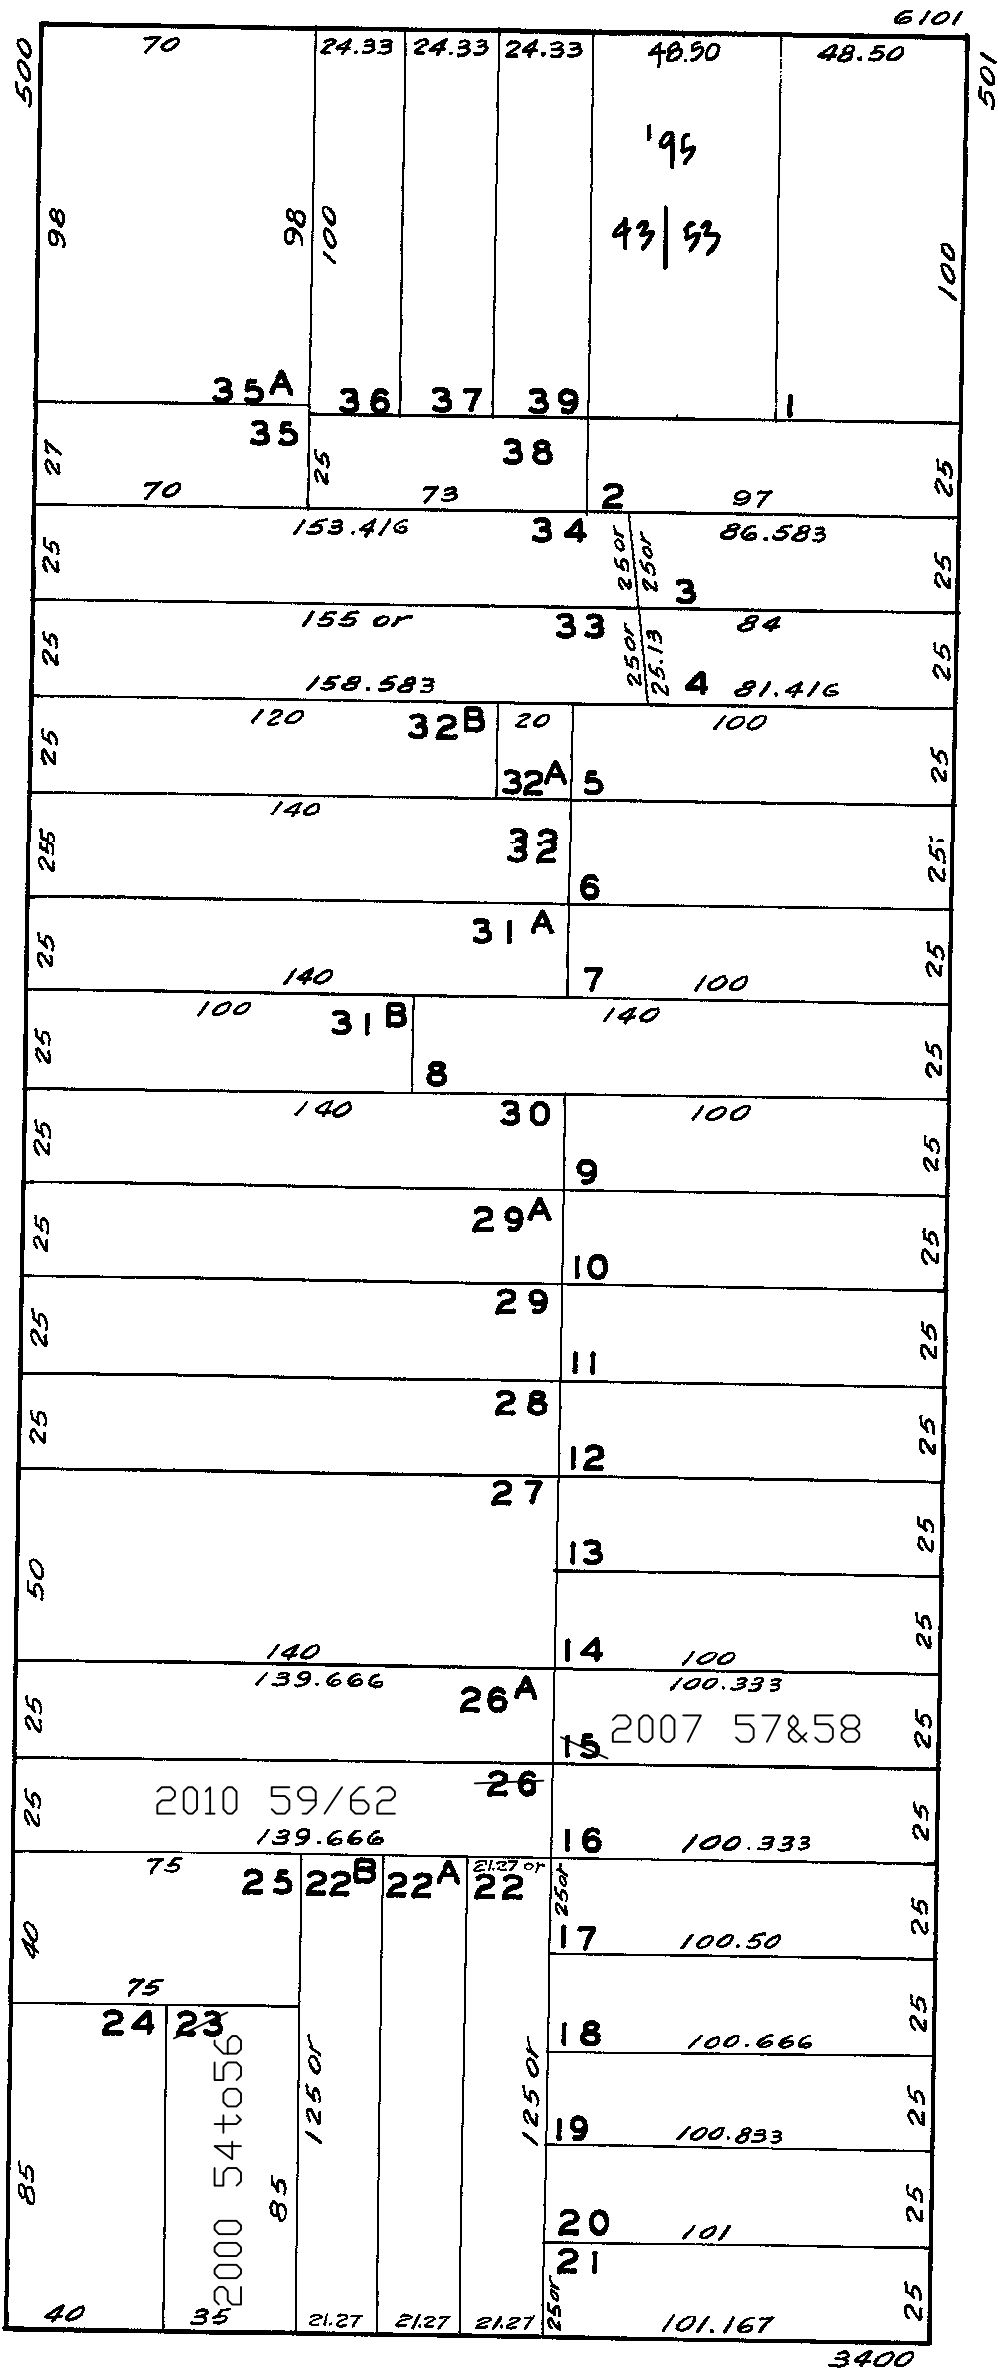 6101
500
70 24.33 24.33 24.33 48.50 48.50
501
'95
43|53
98 98 100 100
35A 36 37 39 1
35 38
27 25 25
70 73 2 97
153.416 34 86.583
25 25 or 25 or 25
3
155 or 33 84
25 25 or 25.13 25
158.583 4 81.416
120 32B 20 100
25 32A 5 25
140
25 32 25
6
31A
25 25
140 7 100
100 31B 140
25 8 25
140 30 100
25 9 25
29A
25 10 25
29
25 11 25
28
25 12 25
27
13 25
50
14 25
140 100
139.666 26A 100.333
25 15 2007 57&58 25
26
25 2010 59/62 25
139.666 16 100.333
75 25 22B 22A 21.27 or 22 25 or
40 17 100.50 25
75
24 23
2000 54to56
18 100.666 25
125 or 125 or
19 100.833 25
85 85
20 101 25
21
40 35 21.27 21.27 21.27 25 or 101.167 25
3400